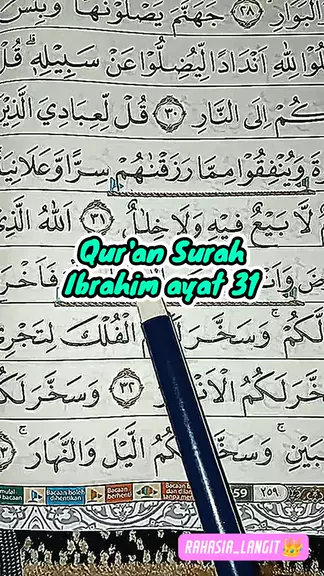 الْبَوَارِۙ ٢٨ جَهَنَّمَ يَصْلَوْنَهَاۗ وَبِئْسَ
لُوْا لِلّٰهِ اَنْدَادًا لِّيُضِلُّوْا عَنْ سَبِيْلِهٖۗ قُلْ
كُمْ اِلَى النَّارِ ٣٠ قُلْ لِّعِبَادِيَ الَّذِيْنَ
ةَ وَيُنْفِقُوْا مِمَّا رَزَقْنٰهُمْ سِرًّا وَّعَلَانِيَةً
لَّا بَيْعٌ فِيْهِ وَلَا خِلٰلٌ ٣١ اَللّٰهُ الَّذِيْ
Qur'an Surah
Ibrahim ayat 31
فَاَخْرَجَ
لَكُمْۚ وَسَخَّرَ لَكُمُ الْفُلْكَ لِتَجْرِيَ
سَخَّرَ لَكُمُ الْاَنْهٰرَ ٣٢ وَسَخَّرَ لَكُمُ
بَيْنِۚ وَسَخَّرَ لَكُمُ الَّيْلَ وَالنَّهَارَۚ
Bacaan boleh dihentikan
Bacaan berhenti
٢٥٩
RAHASIA_LANGIT